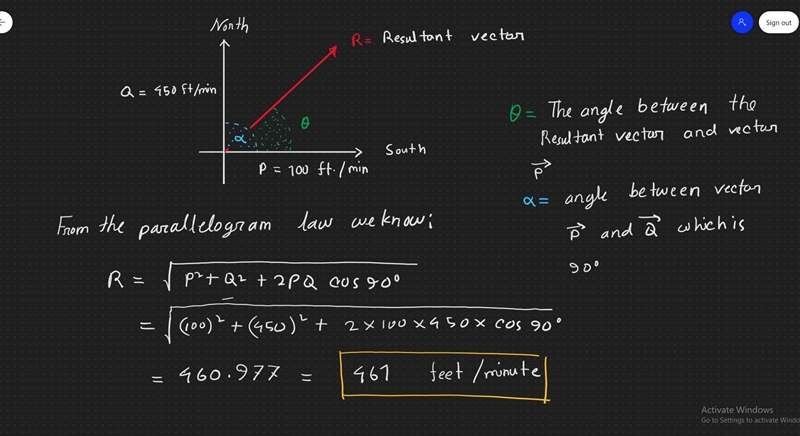 Sign out
North
R = Resultant vector
Q = 450 ft/min
α
θ
South
P = 100 ft./min
θ = The angle between the
Resultant vector and vector
P⃗
α = angle between vector
P⃗ and Q⃗ which is
90°
From the parallelogram law we know;
R = √(P² + Q² + 2PQ cos 90°)
= √((100)² + (450)² + 2 × 100 × 450 × cos 90°)
= 460.977 = 461 feet/minute
Activate Windows
Go to Settings to activate Windo